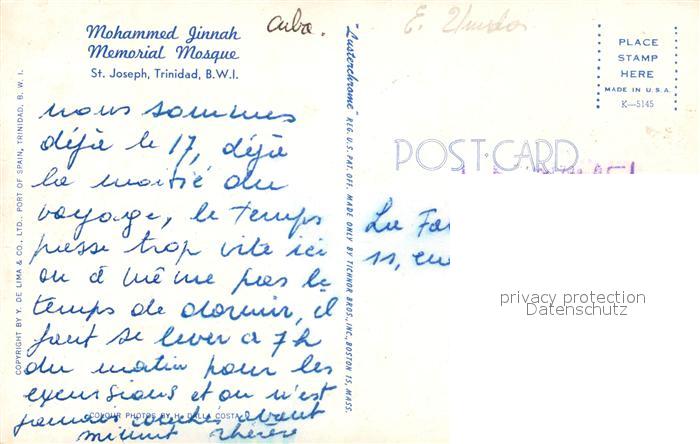 Mohammed Jinnah
Memorial Mosque
St. Joseph, Trinidad, B.W.I.
Cuba.
nous sommes
déjà le 17, déjà
la moitié du
voyage, le temps
passe trop vite ici
on a même pas le
temps de dormir, il
faut se lever à 7h
du matin pour les
excursions et on n'est
jamais couchés avant
minuit
COLOUR PHOTOS BY H. DELLA COSTA
COPYRIGHT BY Y. DE LIMA & CO., LTD., PORT OF SPAIN, TRINIDAD, B. W. I.
"Lusterchrome" REG. U.S. PAT. OFF. MADE ONLY BY TICHNOR BROS., INC., BOSTON 15, MASS.
PLACE
STAMP
HERE
MADE IN U.S.A.
K—5145
POST CARD
privacy protection
Datenschutz